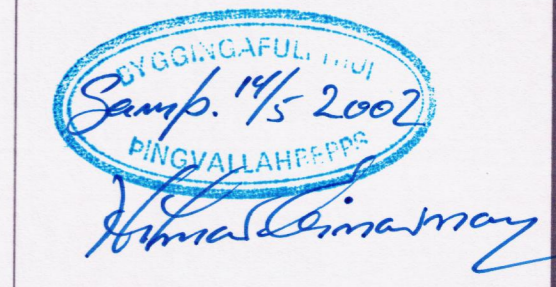 BYGGINGAFULLTRÚI
Samþ. 14/5 2002
ÞINGVALLAHREPPS
Hilmar Einarsson